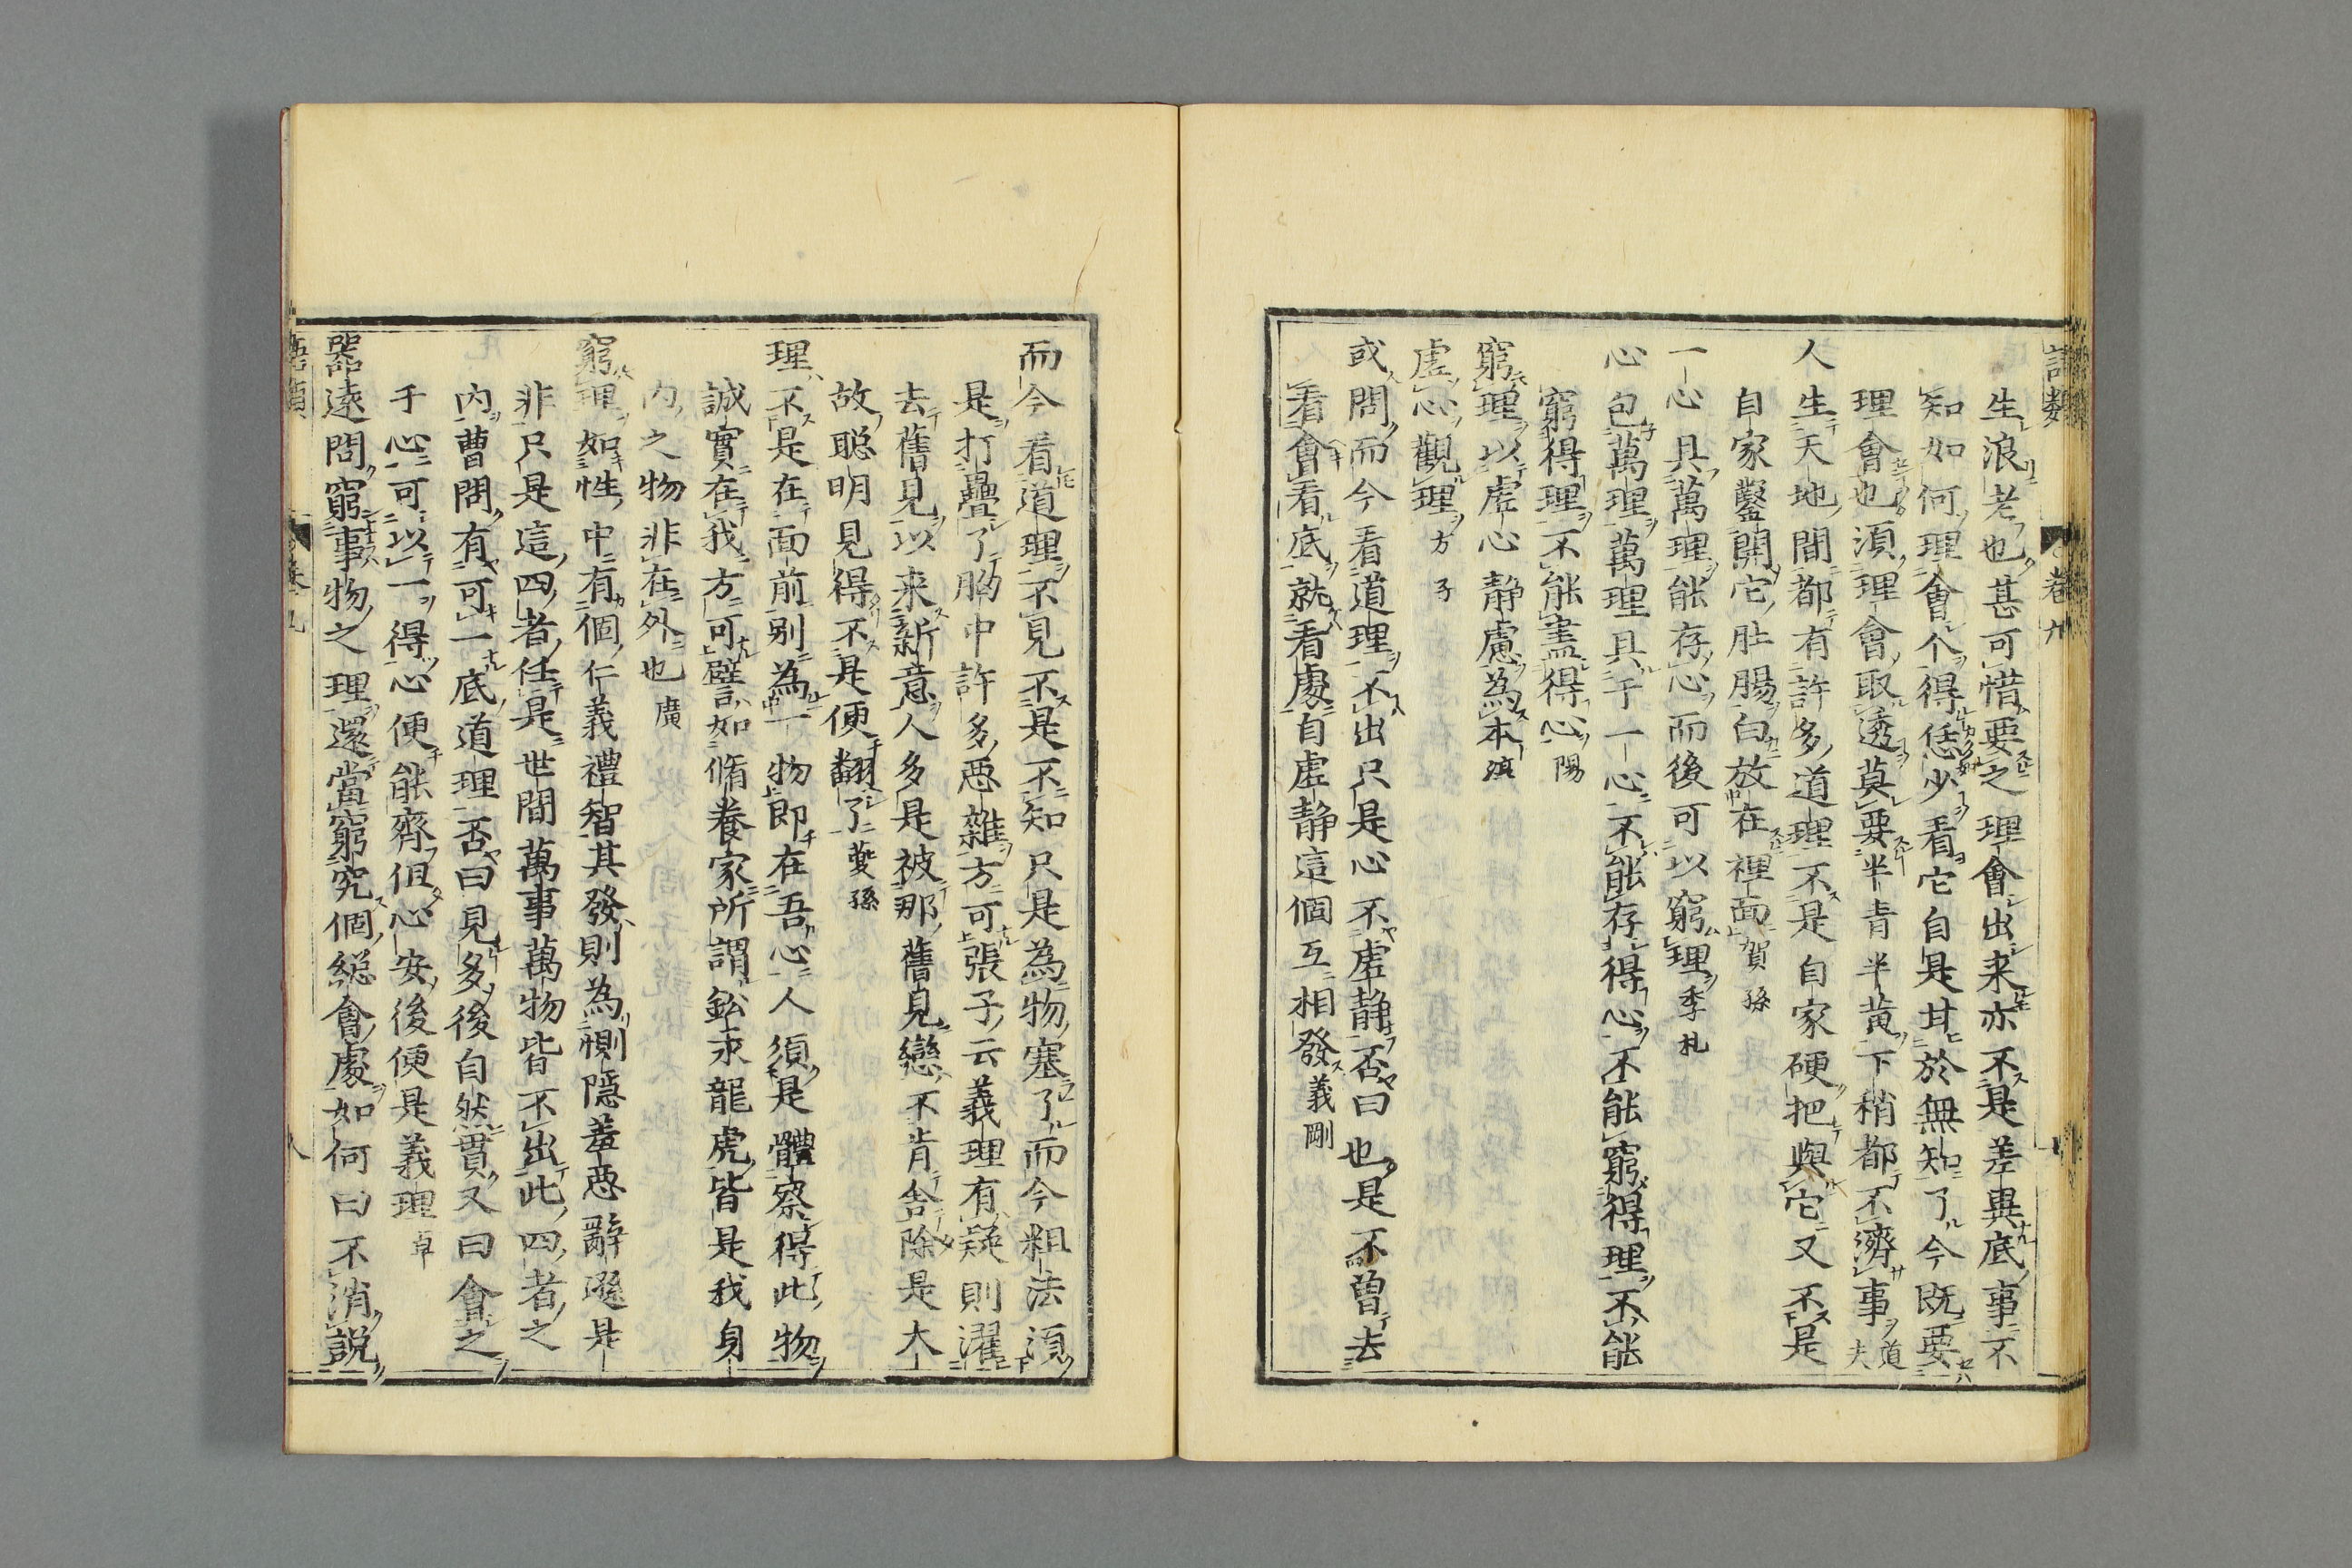 語類
卷九
生浪老也甚可惜要之理會出来亦不是差異底事不
知如何理會个得恁少看它自是甘於無知了今既要
理會也須理會取透莫要半青半黃下稍都不濟事道夫
人生天地間都有許多道理不是自家硬把與它又不是
自家鑿開它肚腸白放在裡面賀孫
一心具萬理能存心而後可以窮理季札
心包萬理萬理具于一心不能存得心不能窮得理不能
窮得理不能盡得心陽
窮理以虛心靜慮為本淳
虛心觀理方子
或問而今看道理不出只是心不虛静否曰也是不曾去
看會看底就看處自虛静這個互相發義剛
而今看道理不見不是不知只是為物塞了而今粗法須
是打疊了胸中許多惡雜方可張子云義理有疑則濯
去舊見以来新意人多是被那舊見戀不肯舍除是大
故聡明見得不是便翻了虁孫
理不是在面前別為一物即在吾心人須是體察得此物
誠實在我方可譬如脩養家所謂鉛汞龍虎皆是我身
内之物非在外也廣
窮理如性中有個仁義禮智其發則為惻隠羞惡辭遜是
非只是這四者任是世間萬事萬物皆不出此四者之
内曹問有可一底道理否曰見多後自然貫又曰會之
于心可以一得心便能齊但心安後便是義理卓
器遠問窮事物之理還當窮究個總會處如何曰不消說
語類
卷九
八